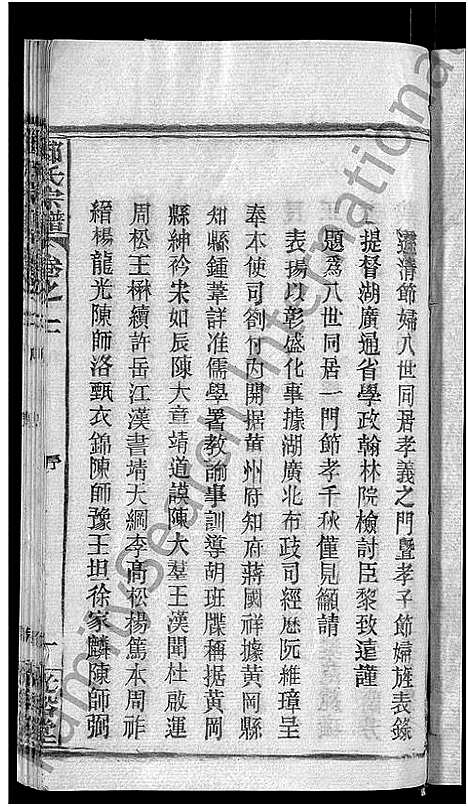 遜清節婦八世同居孝義之門暨孝子節婦旌表錄
提督湖廣通省學政翰林院檢討臣黎致遠謹
題為八世同居一門節孝千秋僅見籲請
表揚以彰盛化事據湖廣北布政司經歷阮維璋呈
奉本使司劄付內開据黃州府知府蔣國祥據黃岡縣
知縣鍾葦詳准儒學署教諭事訓導胡班牒稱据黃岡
縣紳衿朱如辰陳大章靖道謨陳大羣王漢聞杜啟運
周松王楙績許岳江漢書靖大綱李高松楊篤本周祚
縉楊龍光陳師洛甄衣錦陳師豫王坦徐家麟陳師弼
氏宗譜 卷之二 序 一 堂
FamilySearch International